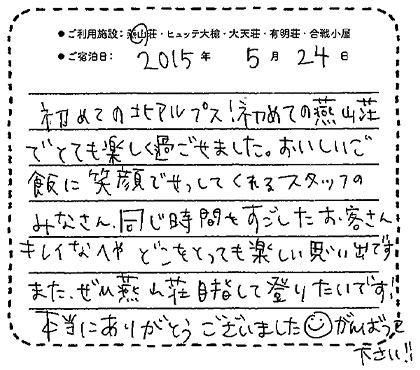 ●ご利用施設：燕山荘・ヒュッテ大槍・大天荘・有明荘・合戦小屋
●ご宿泊日：2015年 5月 24日
初めての北アルプス！初めての燕山荘
でとても楽しく過ごせました。おいしいご
飯に笑顔でせっしてくれるスタッフの
みなさん、同じ時間をすごしたお客さん
キレイなへや どこをとっても楽しい思い出です
また、ぜひ燕山荘目指して登りたいです！
本当にありがとうございました☺がんばって
下さい!!